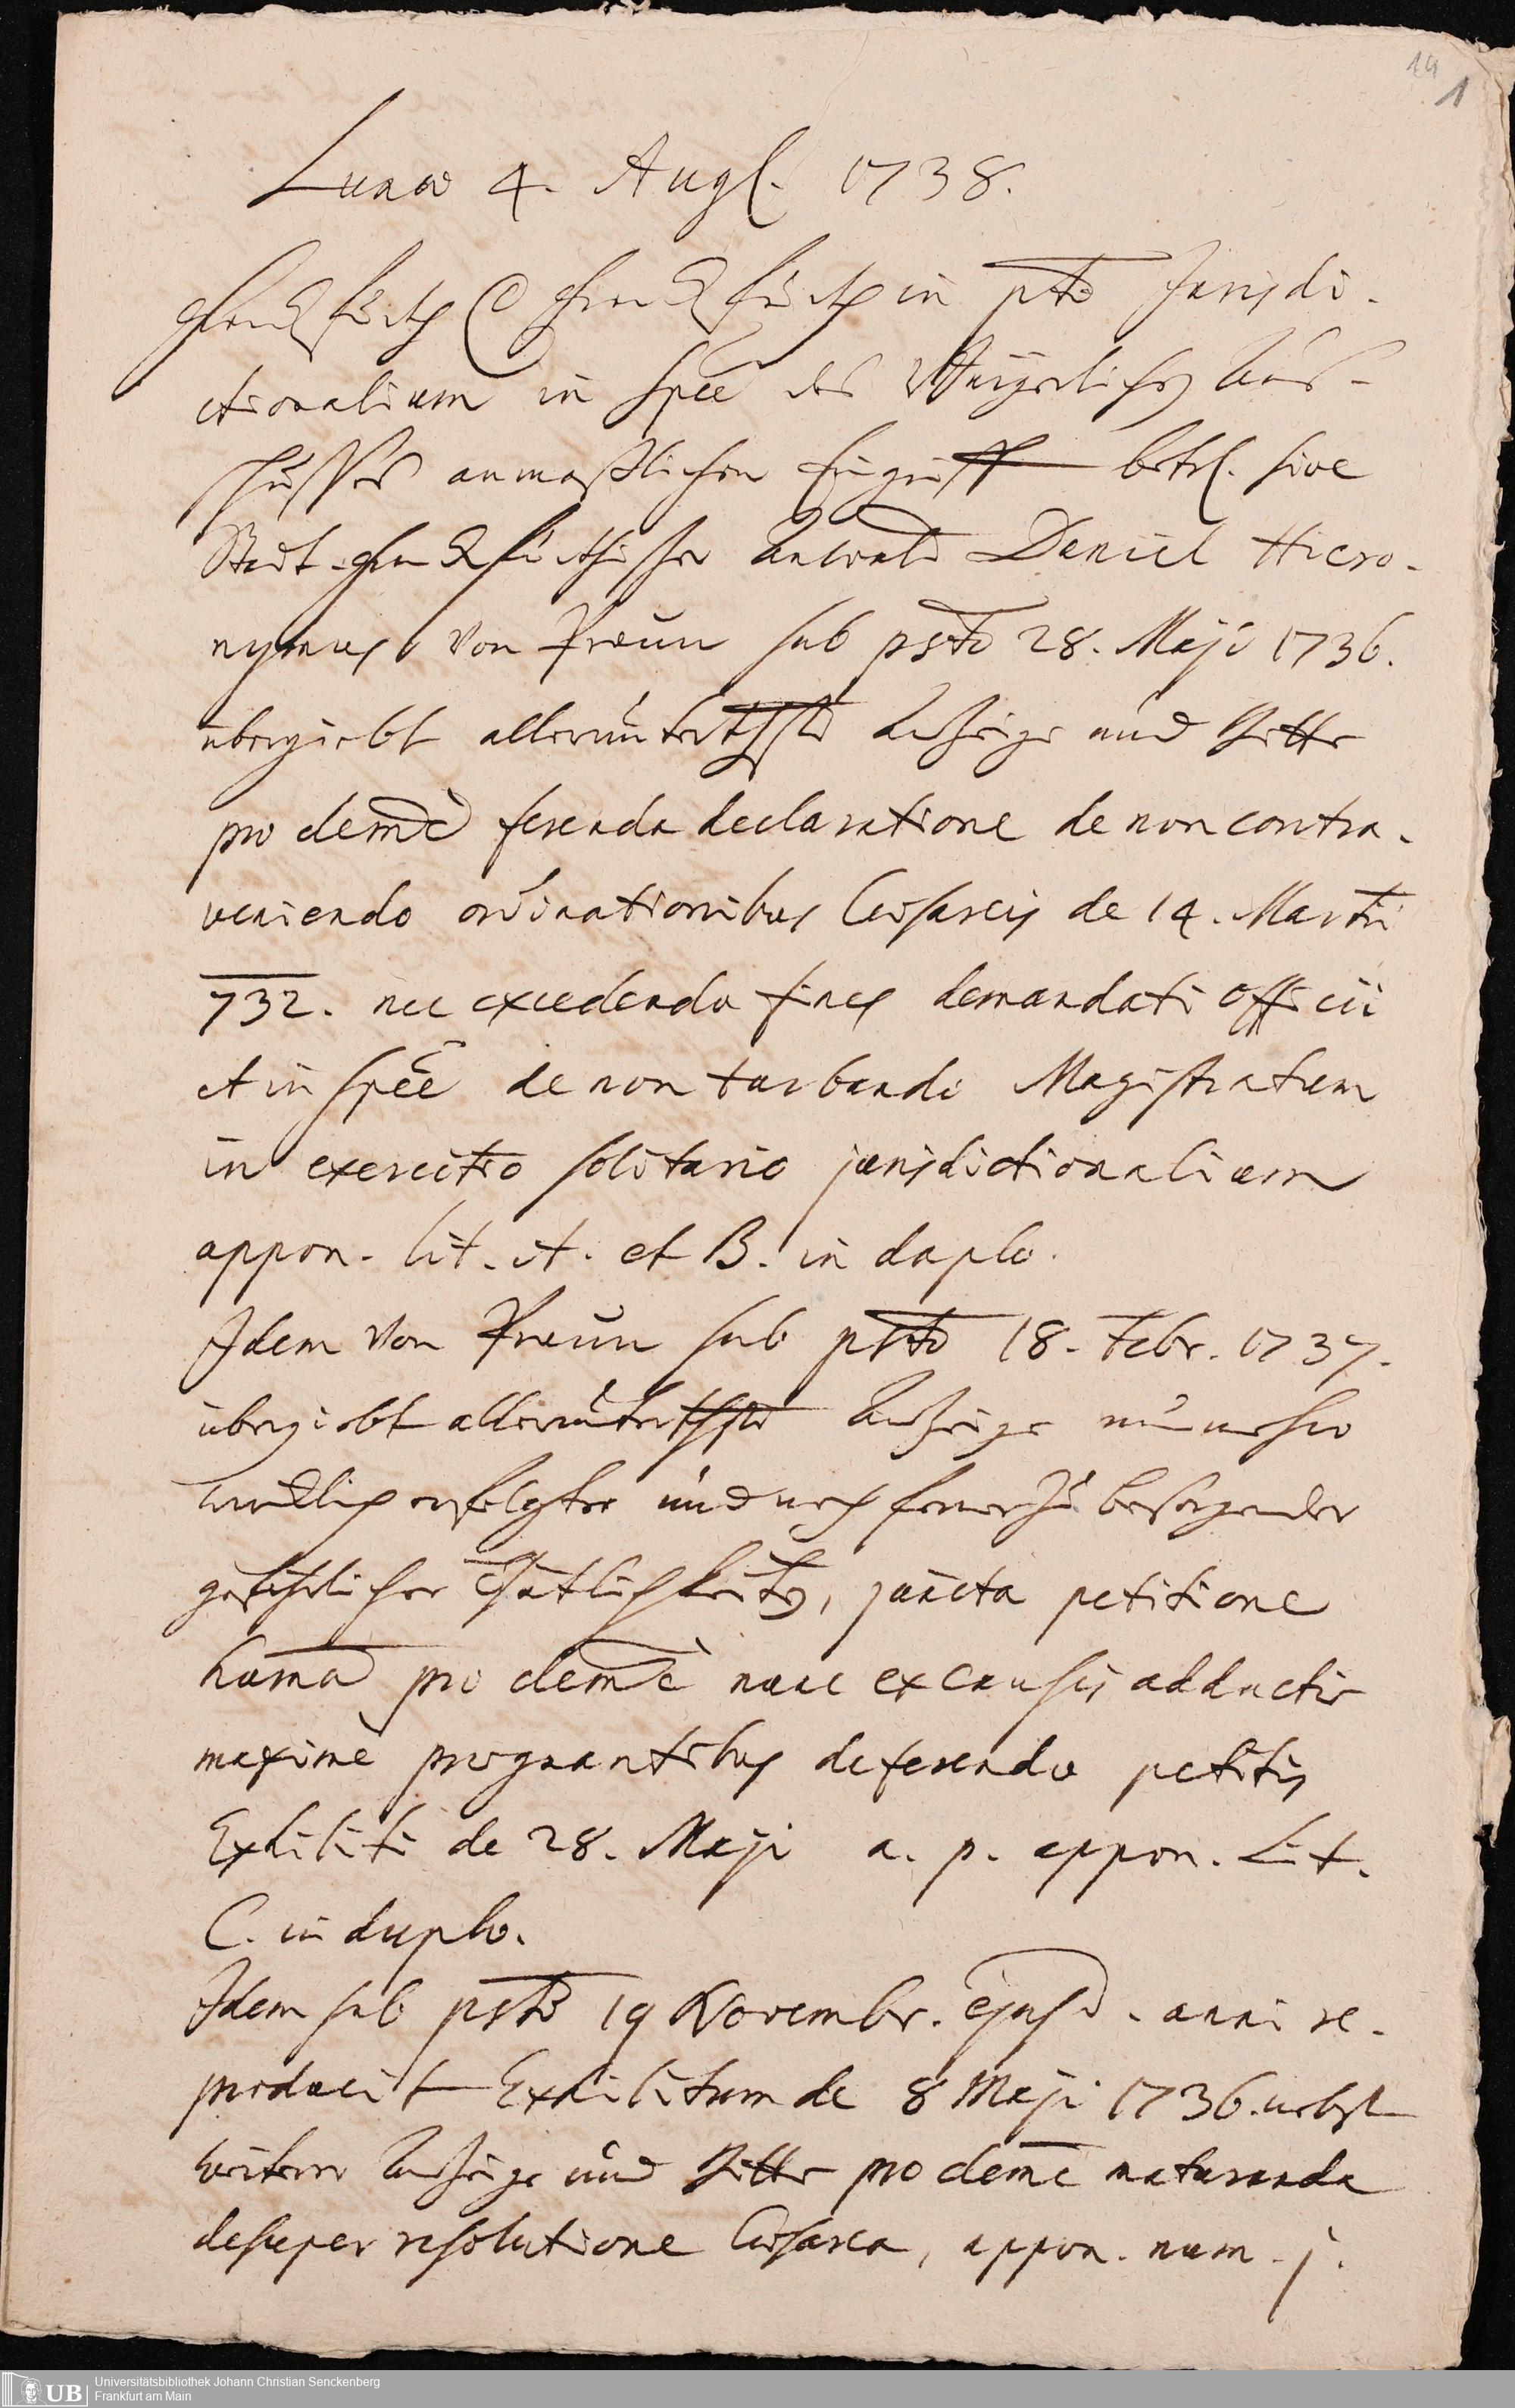 19
1
Lunæ 4. Aug. 1738.
Franckfurth C Franckfurth in pto Jurisdi-
ctionalium in spée des Bürgerlichen Auß-
schusses anmaßlichen Eingriff betr. sive
Statt-Franckfurthischer Anwald Daniel Hiero-
nymus von Praun sub psto 28. Maji 1736.
übergiebt allerunterthgste Anzeige und Bitte
pro clemê ferenda declaratione de non contra-
veniendo ordinationibus Cæsareis de 14. Martii
732. nec excedendo fines demandati officii
et in spée de non turbando Magistratum
in exercitio solitario jurisdictionalium
appon. lit. A. et B. in duplo.
Idem von Praun sub psto 18. Febr. 1737.
übergiebt allerunterthgste Anzeige nunmehro
würcklich erfolgter und noch ferner zu besorgender
gefährlicher Thätlichkeiten, juncta petitione
huma pro clemê nunc ex causis adductis
maximè prægnantibus deferendo petitis
Exhibiti de 28. Maji a. p. appon. Lit.
C. in duplo.
Idem sub psto 19 Novembr. ejusd. anni re-
producit Exhibitum de 8 Maji 1736. nebst
weiterer Anzeige und Bitte pro clemê maturanda
desuper resolutione Cæsarea, appon. num. j.
UB
Universitätsbibliothek Johann Christian Senckenberg
Frankfurt am Main